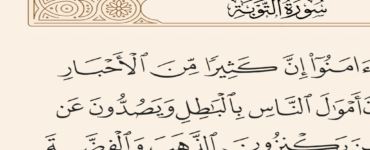 سُورَةُ التَّوْبَةِ
ءَامَنُوٓا۟ إِنَّ كَثِيرًا مِّنَ ٱلْأَحْبَارِ
أَمْوَٰلَ ٱلنَّاسِ بِٱلْبَٰطِلِ وَيَصُدُّونَ عَن
يَكْنِزُونَ ٱلذَّهَبَ وَٱلْفِضَّةَ